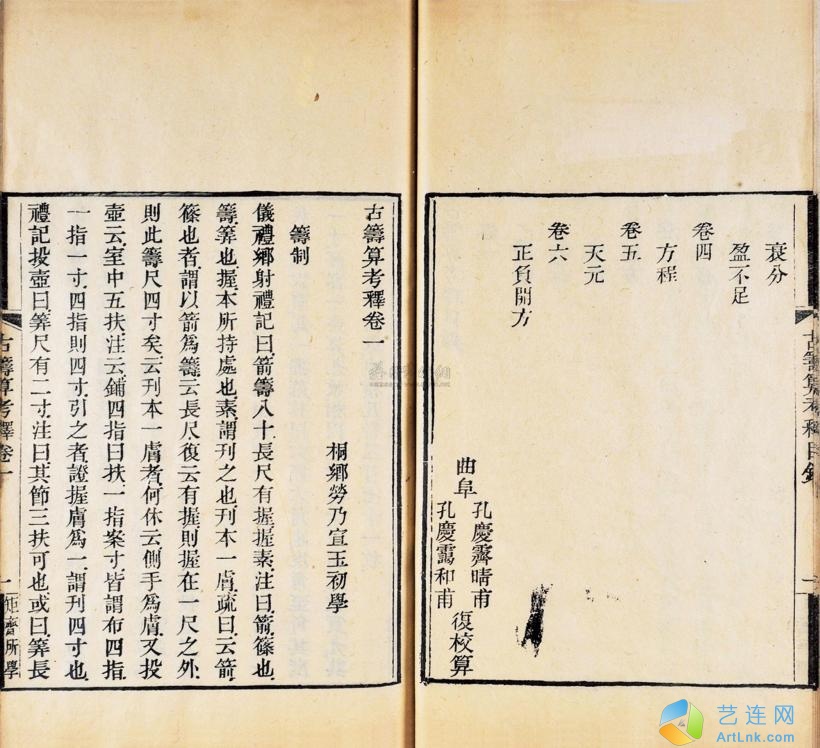 衰分
盈不足
卷四
方程
卷五
天元
卷六
正負開方
曲阜
孔慶霽晴甫
孔慶靄和甫
復校算
古籌算考釋目錄
一
古籌算考釋卷一
桐鄉勞乃宣玉初學
籌制
儀禮鄉射禮記曰箭籌八十長尺有握握素注曰箭篠也
籌筭也握本所持處也素謂刊之也刊本一膚疏曰云箭
篠也者謂以箭爲籌云長尺復云有握則握在一尺之外
則此籌尺四寸矣云刊本一膚者何休云側手爲膚又投
壺云室中五扶注云鋪四指曰扶一指案寸皆謂布四指
一指一寸四指則四寸引之者證握膚爲一謂刊四寸也
禮記投壺曰筭尺有二寸注曰其節三扶可也或曰筭長
古籌算考釋卷一
一
矩齋所學
艺连网
ArtLnk.com